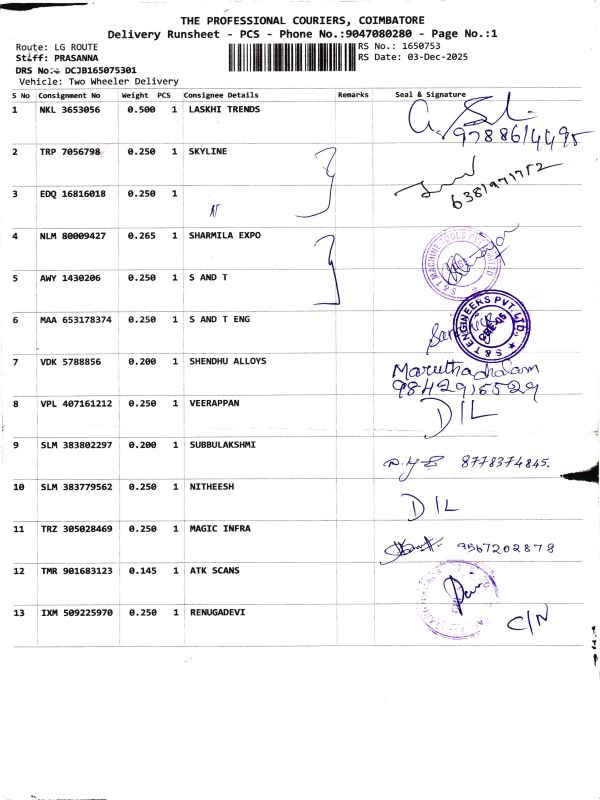 THE PROFESSIONAL COURIERS, COIMBATORE
Delivery Runsheet - PCS - Phone No.:9047080280 - Page No.:1
Route: LG ROUTE
RS No.: 1650753
Staff: PRASANNA
RS Date: 03-Dec-2025
DRS No.: DCJB165075301
Vehicle: Two Wheeler Delivery
S No Consignment No Weight PCS Consignee Details Remarks Seal & Signature
1 NKL 3653056 0.500 1 LASKHI TRENDS
9788614495
2 TRP 7056798 0.250 1 SKYLINE
6381971752
3 EDQ 16816018 0.250 1
4 NLM 80009427 0.265 1 SHARMILA EXPO
5 AWY 1430206 0.250 1 S AND T
6 MAA 653178374 0.250 1 S AND T ENG
S & T ENGINEERS PVT. LTD.
CBE-05
7 VDK 5788856 0.200 1 SHENDHU ALLOYS
Maruthachalam
9842916529
8 VPL 407161212 0.250 1 VEERAPPAN
D/L
9 SLM 383802297 0.200 1 SUBBULAKSHMI
8778374845.
10 SLM 383779562 0.250 1 NITHEESH
D/L
11 TRZ 305028469 0.250 1 MAGIC INFRA
9367202878
12 TMR 901683123 0.145 1 ATK SCANS
13 IXM 509225970 0.250 1 RENUGADEVI
C/N